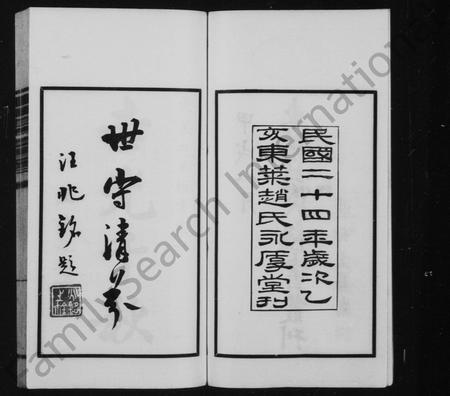 民國二十四年歲次乙
亥東萊趙氏永厚堂刊
世守清芬
汪兆銘題
FamilySearch International